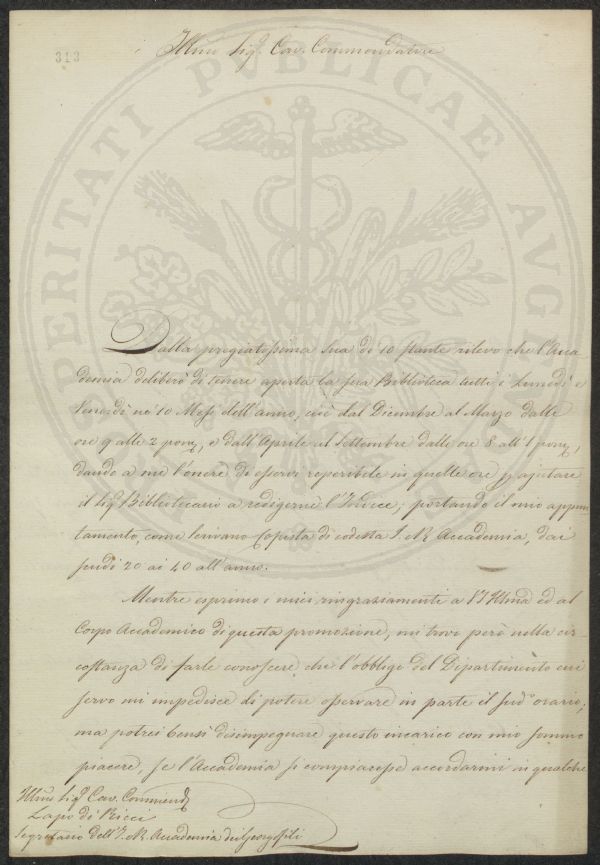 313
Illmo Sig.r Cav. Commendatore
PROSPERITATI PUBLICAE AUGENDAE
Dalla pregiatissima Sua di 10 stante rilevo che l'Acca
demia deliberò di tenere aperta la sua Biblioteca tutti i Lunedì e
Venerdì nei 10 Mesi dell'anno, cioè dal Dicembre al Marzo dalle
ore 9 alle 2 pom., e dall'Aprile al Settembre dalle ore 8 all'1 pom.,
dando a me l'onere di esservi reperibile in quelle ore p ajutare
il Sig.r Bibliotecario a redigerne l'Indice; portando il mio appun
tamento, come Scrivano Copista di codesta I. R. Accademia, dai
scudi 20 ai 40 all'anno.
Mentre esprimo i miei ringraziamenti a VS Illma ed al
Corpo Accademico di questa promozione, mi trovo però nella cir=
costanza di farle conoscere, che l'obbligo del Dipartimento cui
servo mi impedisce di potere osservare in parte il sud.o orario,
ma potrei bensì disimpegnare questo incarico con mio sommo
piacere, se l'Accademia si compiacesse accordarmi in qualche
Illmo Sig.r Cav. Commend.
Lapo de Ricci
Segretario dell'I. R. Accademia dei Georgofili